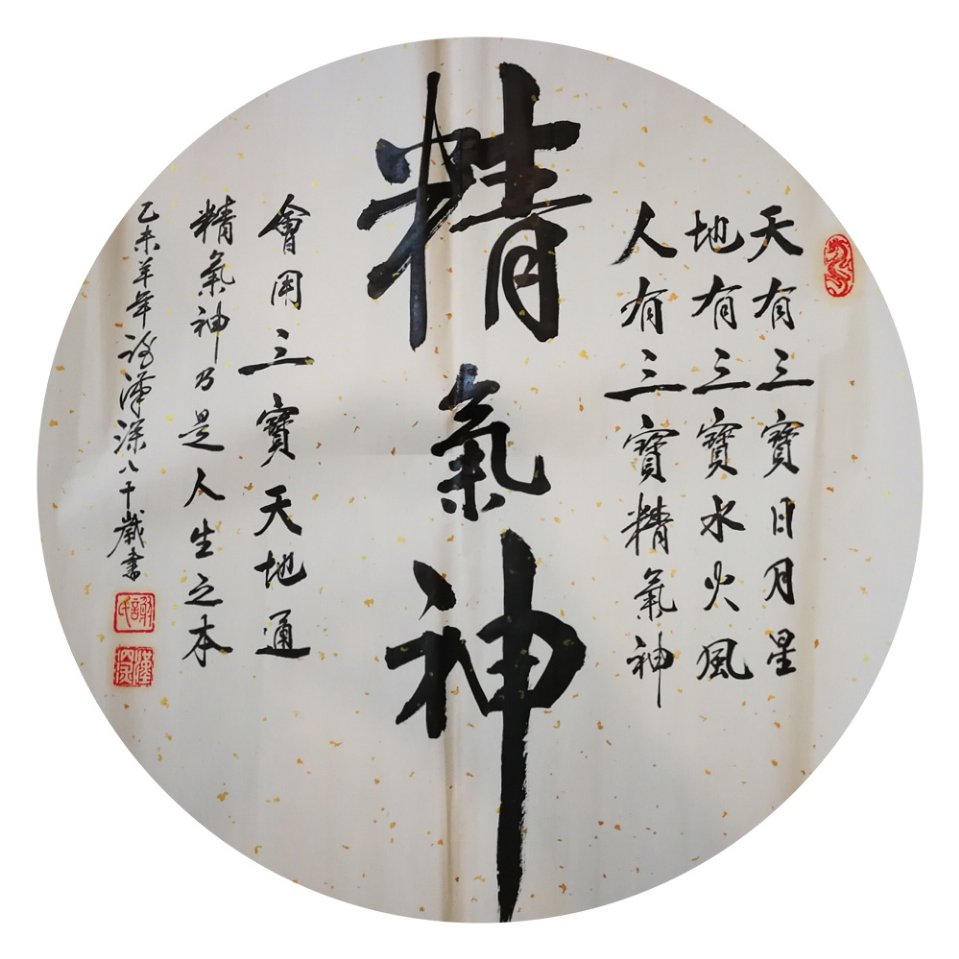 天有三寶日月星
地有三寶水火風
人有三寶精氣神
精氣神
會用三寶天地通
精氣神乃是人生之本
乙未羊年謝漢深八十歲書
謝氏
漢深